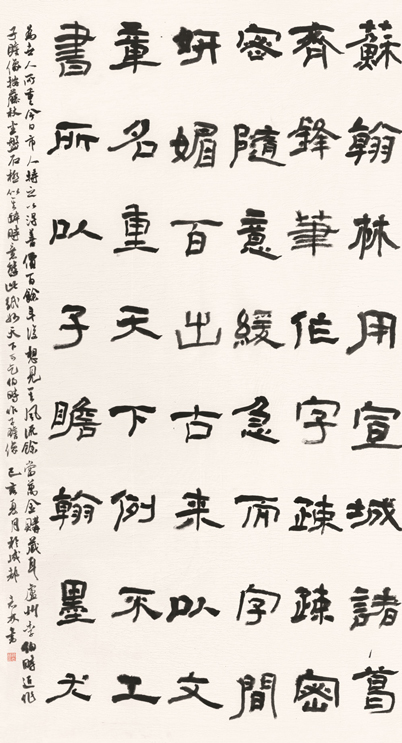 蘇翰林用宣城諸葛
齊鋒筆作字疎疎密
密隨意緩急而字間
妍媚百出古来以文
章名重天下例不工
書所以子瞻翰墨尤
爲世人所重今日市人持之以得善價百餘年後想見其風流餘當萬金購藏耳廬州李伯時近作
子瞻像按藤杖坐盤石極似其醉時意態此紙妙天下可乞伯時作子瞻像 己亥夏月於成都